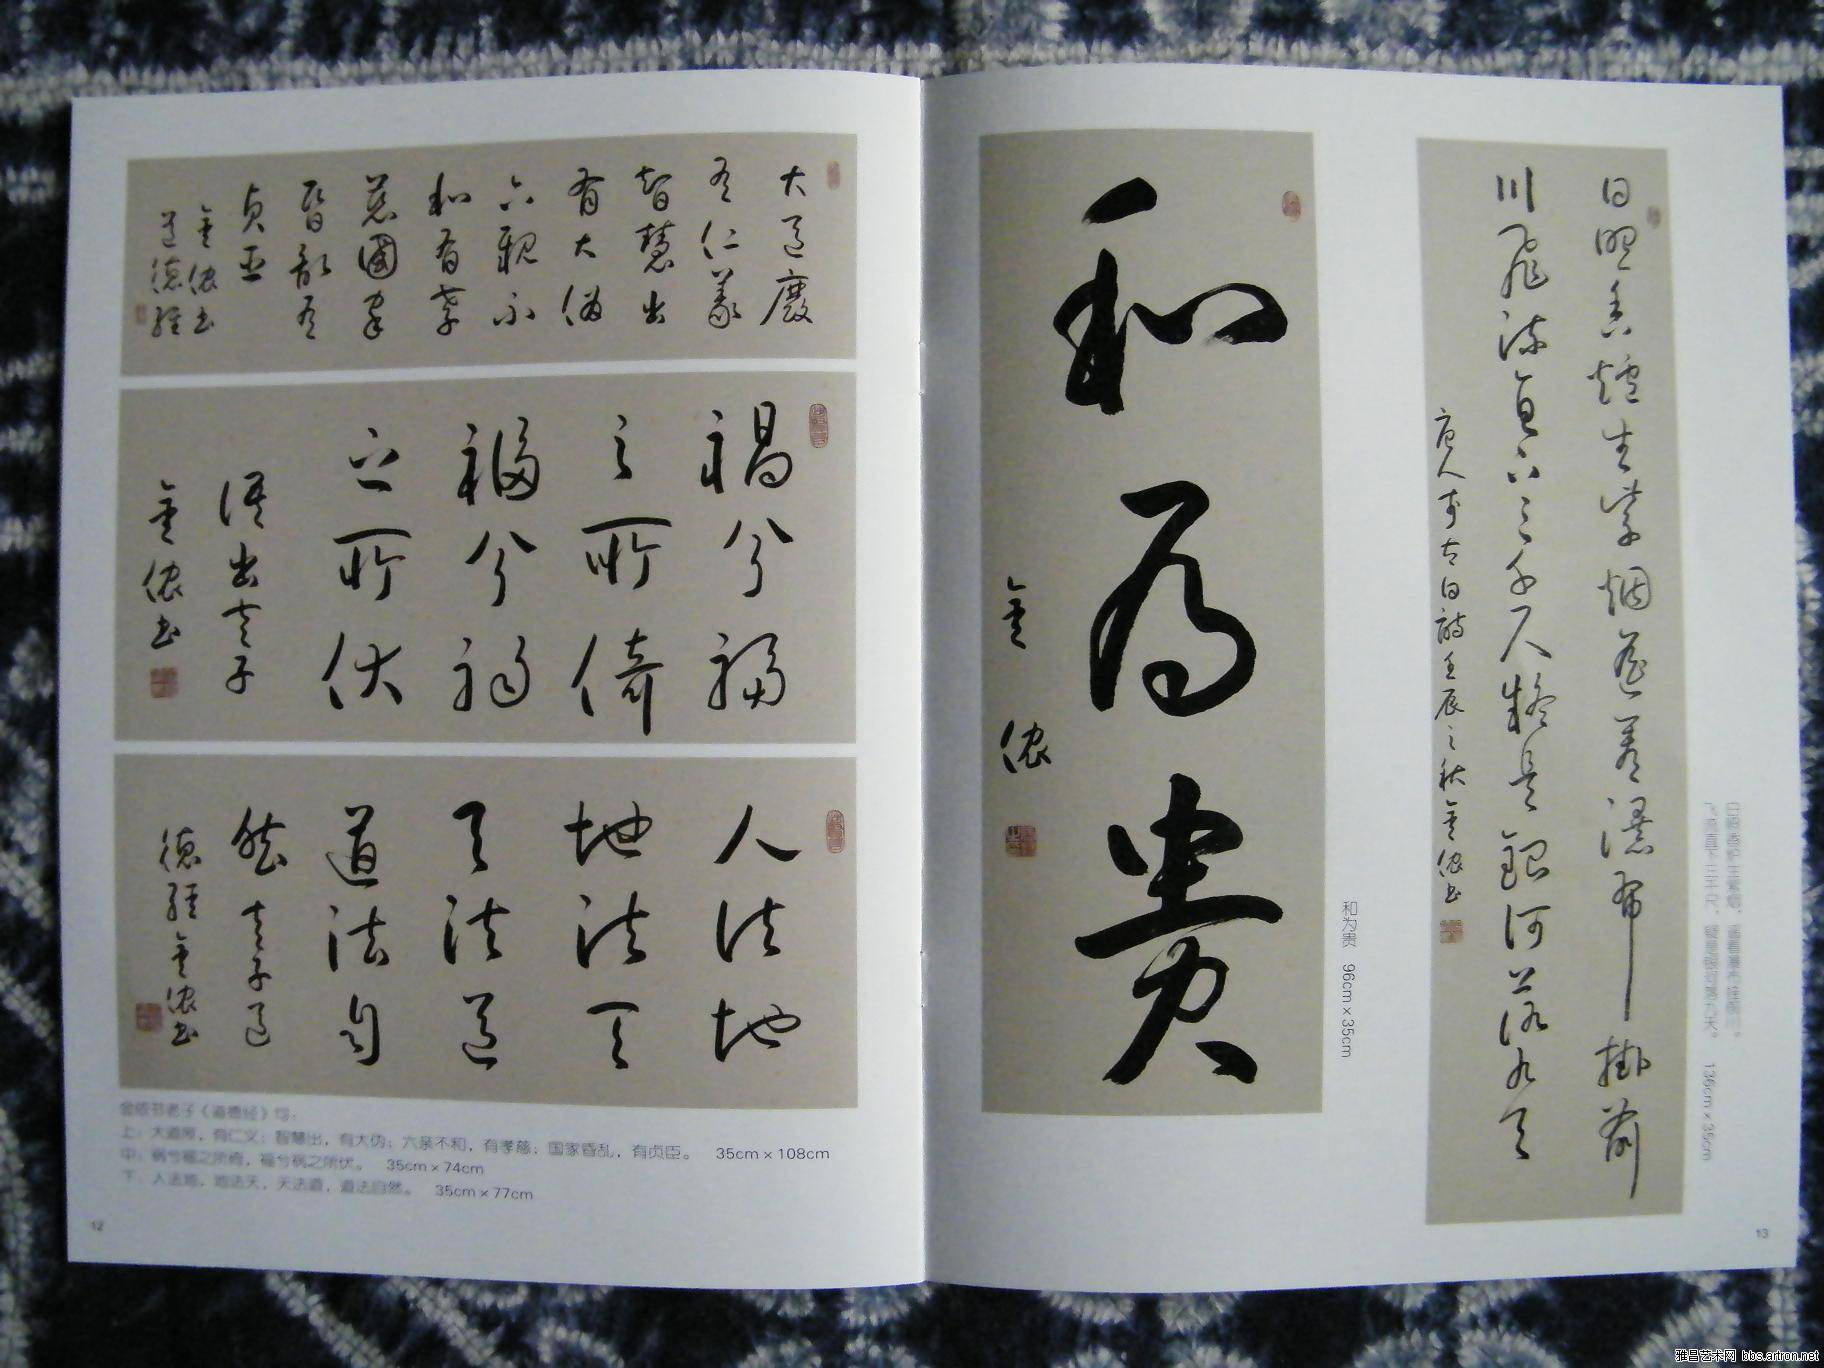 大道廢
有仁義
智慧出
有大偽
六親不
和有孝
慈國家
昏亂有
貞臣
金依書
道德經
禍兮福
之所倚
福兮禍
之所伏
語出老子
金依書
人法地
地法天
天法道
道法自
然老子道
德經金依書
金依书老子《道德经》句：
上：大道废，有仁义；智慧出，有大伪；六亲不和，有孝慈；国家昏乱，有贞臣。 35cm×108cm
中：祸兮福之所倚，福兮祸之所伏。 35cm×74cm
下：人法地，地法天，天法道，道法自然。 35cm×77cm
12
日照香炉生紫烟，遥看瀑布挂前川。
飞流直下三千尺，疑是银河落九天。 136cm×35cm
日照香爐生紫烟遙看瀑布掛前
川飛流直下三千尺疑是銀河落九天
唐人李太白詩壬辰之秋金依書
和为贵 96cm×35cm
和為貴
金依
13
雅昌艺术网 bbs.artron.net